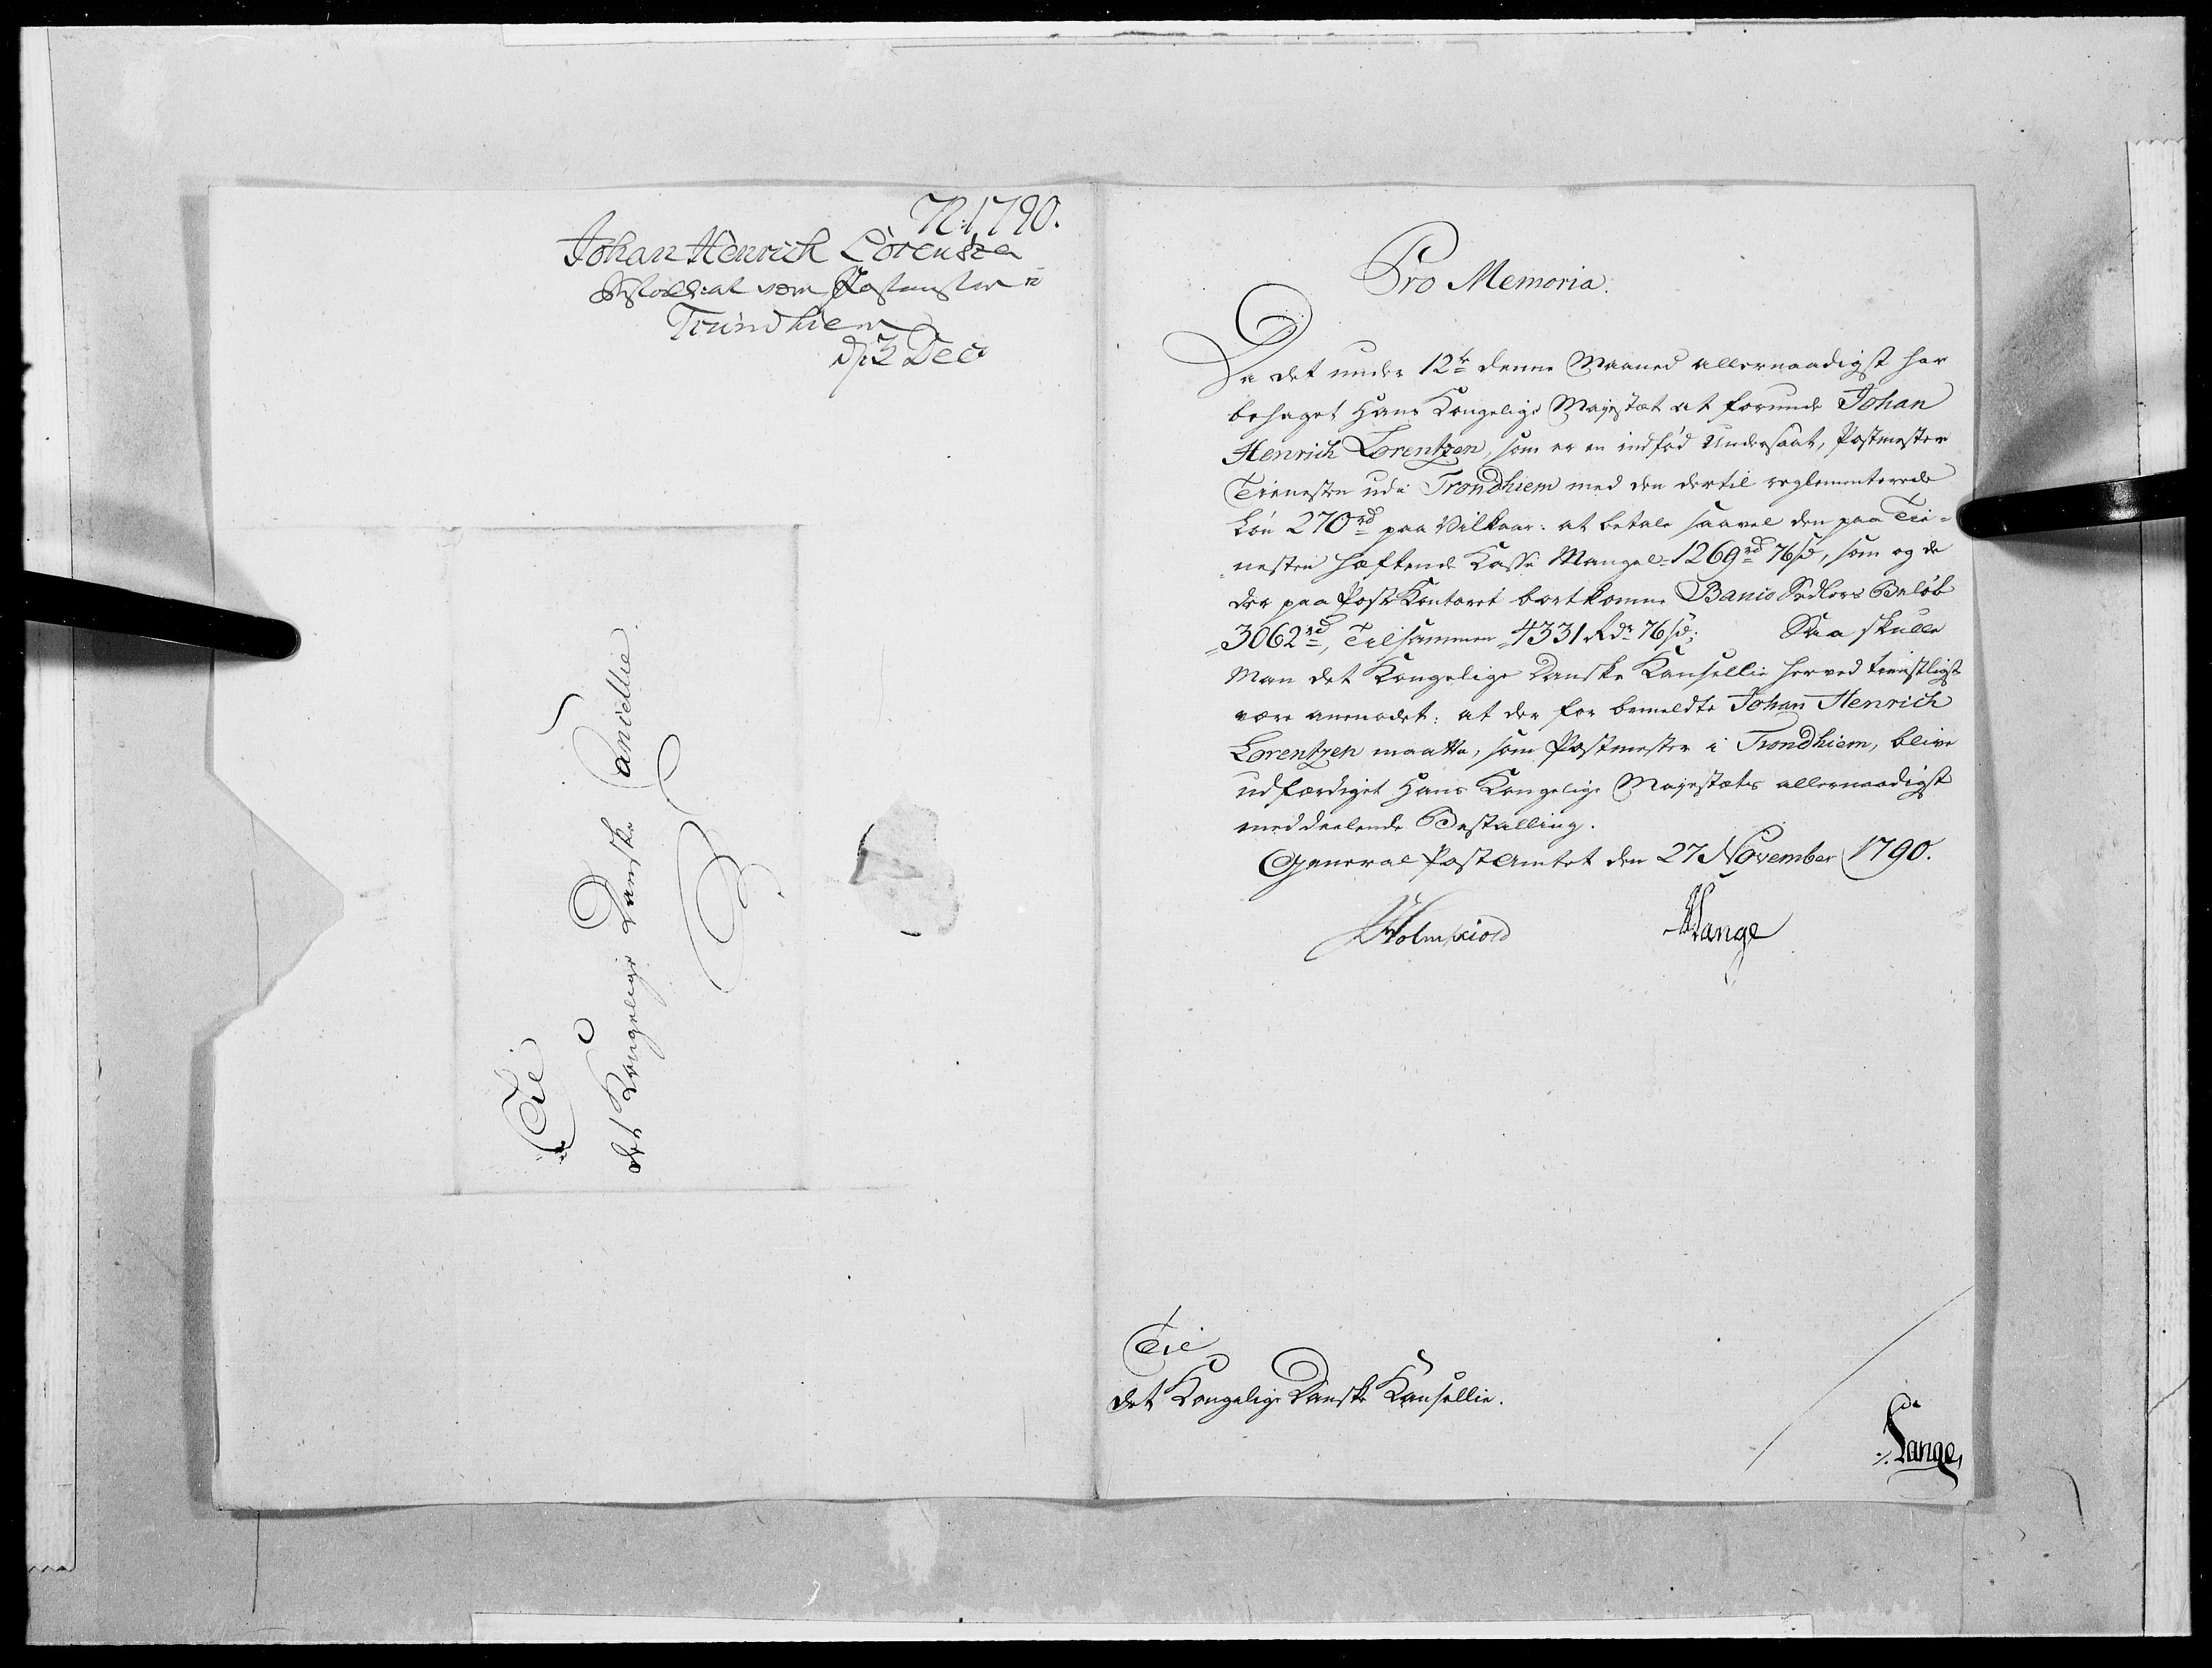 N: 1790.
Johan Henrich Lorenszen
Bestall: at være Postmester i
Trundhiem
d/3 Dec
Til
det Kongelige Danske Canicellie
Pro Memoria.
Da det under 12te denne Maaned allernaadigst har
behaget Hans Kongelige Majestæt at forunde Johan
Henrich Lorentzen, som er en indfød Undersaat, Postmester
Tienesten udi Trondhiem med den dertil reglementerede
Løn 270rd paa Vilkaar: at betale saavel den paa Tie-
nesten hæftende Kasse Mangel 1269rd 76ß, som og de
der paa Post-Kontoret bortkomne Banco Sedlers Beløb
3062rd, Tilsammen 4331 Rdr 76ß; Saa skulle
Man det Kongelige Danske Kansellie herved tienstligst
være anmodet: at der for bemeldte Johan Henrich
Lorentzen maatte, som Postmester i Trondhiem, blive
udfærdiget Hans Kongelige Majestæts allernaadigst
meddeelende Bestalling.
General Post-Amtet den 27 November 1790.
Holmskiold
Lange
Til
det Kongelige Danske Kansellie.
Lange,